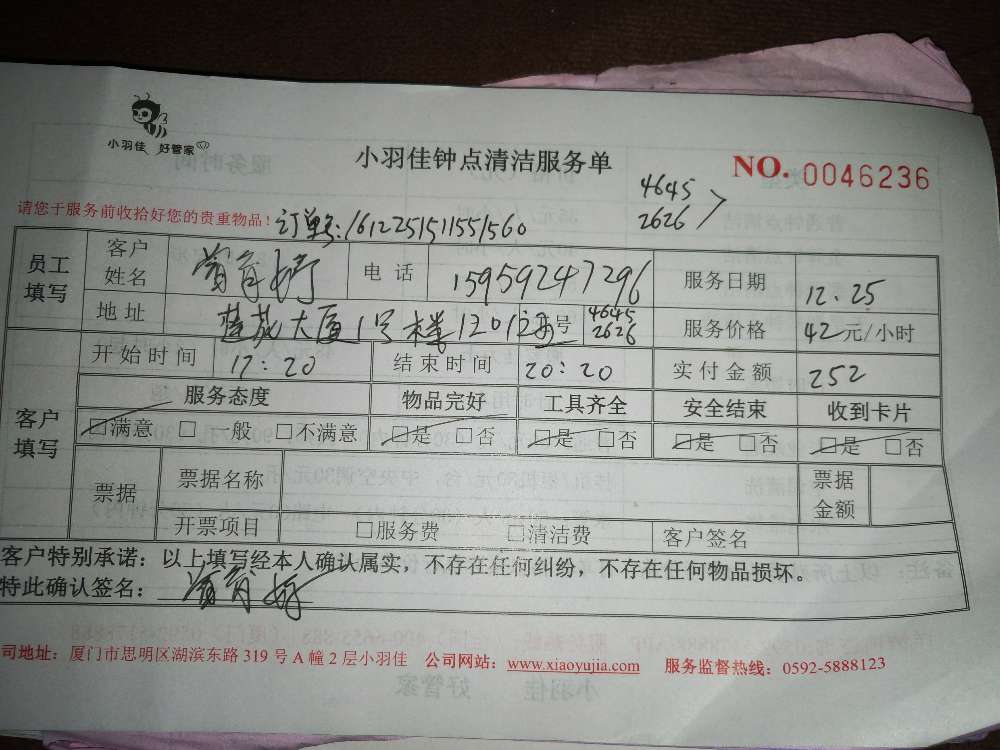 小羽佳 好管家
小羽佳钟点清洁服务单
NO. 0046236
4645
2626
请您于服务前收拾好您的贵重物品!
订单号:1612251511551560
员工填写 客户姓名 电话 15959247296 服务日期 12.25
地址 大厦1号楼1201 号 4645 2626 服务价格 42元/小时
开始时间 17:20 结束时间 20:20 实付金额 252
客户填写 服务态度 物品完好 工具齐全 安全结束 收到卡片
□满意 □一般 □不满意 □是 □否 □是 □否 □是 □否 □是 □否
票据 票据名称 票据金额
开票项目 □服务费 □清洁费 客户签名
客户特别承诺:以上填写经本人确认属实,不存在任何纠纷,不存在任何物品损坏。
特此确认签名:
司地址:厦门市思明区湖滨东路 319 号 A 幢 2 层小羽佳 公司网站:www.xiaoyujia.com 服务监督热线:0592-5888123